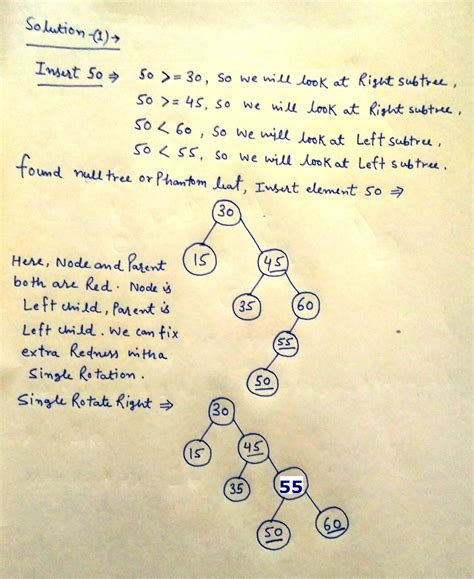 Solution-(1)→
Insert 50 ⇒ 50 >= 30, So we will look at Right subtree,
50 >= 45, so we will look at Right subtree,
50 < 60, So we will look at Left subtree,
50 < 55, So we will look at Left subtree.
found null tree or Phantom leaf, Insert element 50 ⇒
30
15 45
35 60
55
50
Here, Node and Parent
both are Red. Node is
Left child, Parent is
Left child. We can fix
extra Redness with a
Single Rotation.
Single Rotate Right ⇒
30
15 45
35 55
50 60